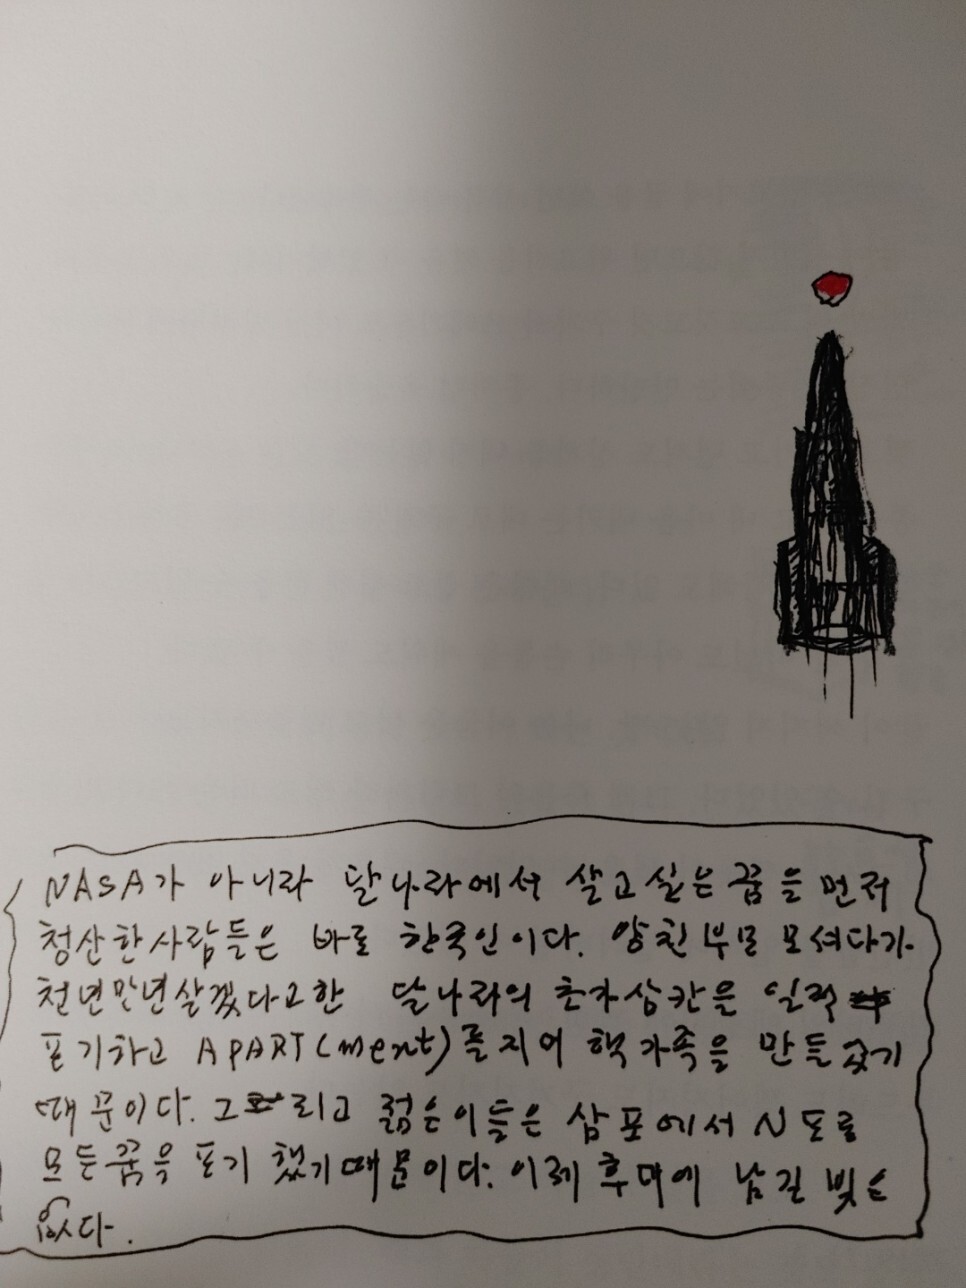 NASA가 아니라 달나라에서 살고싶은 꿈을 먼저
청산한사람들은 바로 한국인이다. 양친부모 모셔다가
천년만년살겠다고한 달나라의 초가삼칸을 일찍
포기하고 APART(ment)를지어 핵가족을 만들었기
때문이다. 그리고 젊은이들은 삼포에서 N포로
모든꿈을 포기 했기때문이다. 이제 후대에 남길 빚도
없다.